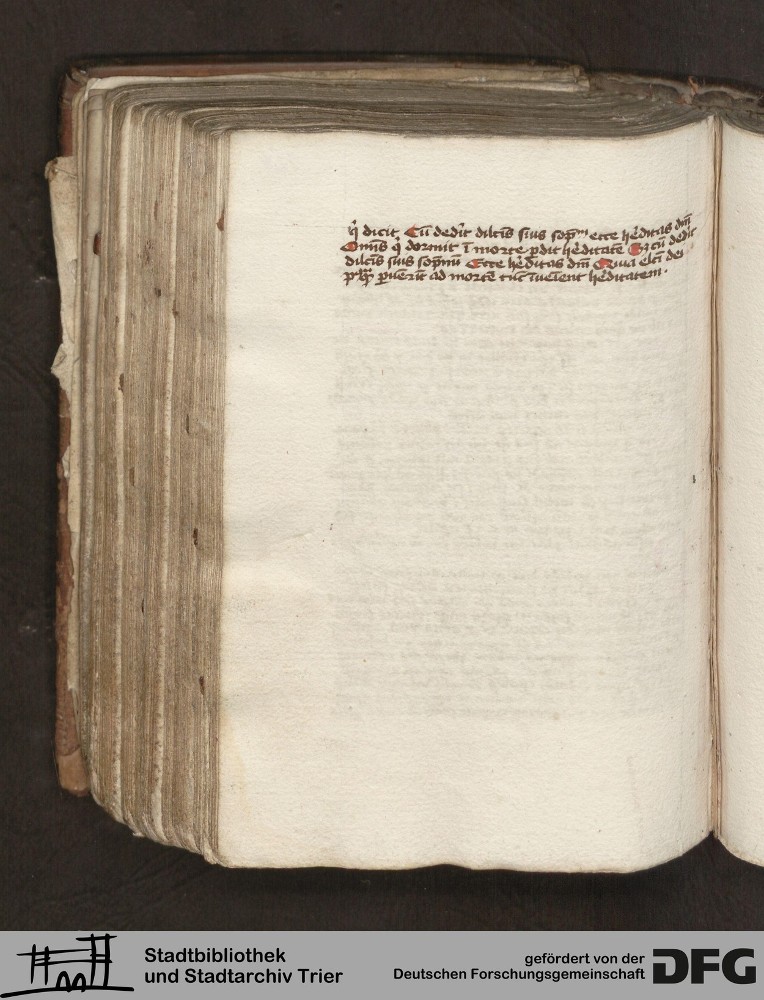 q̇ dicit Cū dedit̄ dilc̄is suis sop̄ ecce h̓editas dn̄i
Om̄is q̇ dormit ī morte p̱dit h̓editatē Sʒ cū dedit̄
dilc̄is suis sop̄nū Ecce h̓editas dn̄i elc̄i dei
p̱uen̄iūt ad mortē tūc īuen̄ient h̓editatem.
Stadtbibliothek
und Stadtarchiv Trier
gefördert von der
Deutschen Forschungsgemeinschaft
DFG